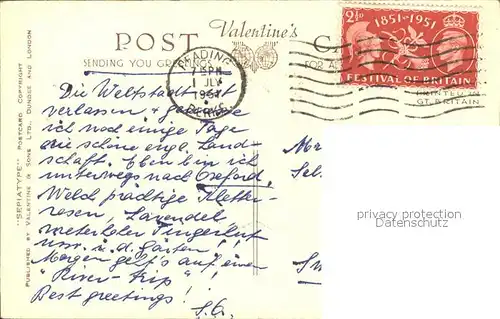 Valentine's
POST CA
SENDING YOU GREETINGS FOR A
READING
7 PM
JLY
1951
BERKS.
2½D
1851-1951
FESTIVAL OF BRITAIN
PRINTED IN
GT. BRITAIN
"SEPIATYPE" POSTCARD COPYRIGHT
PUBLISHED BY VALENTINE & SONS LTD., DUNDEE AND LONDON
Die Weltstadt ist
verlassen &
ich noch einige Tage
die schöne engl. Land-
schaft. Eben bin ich
unterwegs nach Oxford.
Welch prächtige Kletter-
rosen, Lavendel
Fingerhut
usw. i. d. Gärten!!
Morgen geht's auf einen
"River-trip"!
Best greetings!
S.G.
privacy protection
Datenschutz